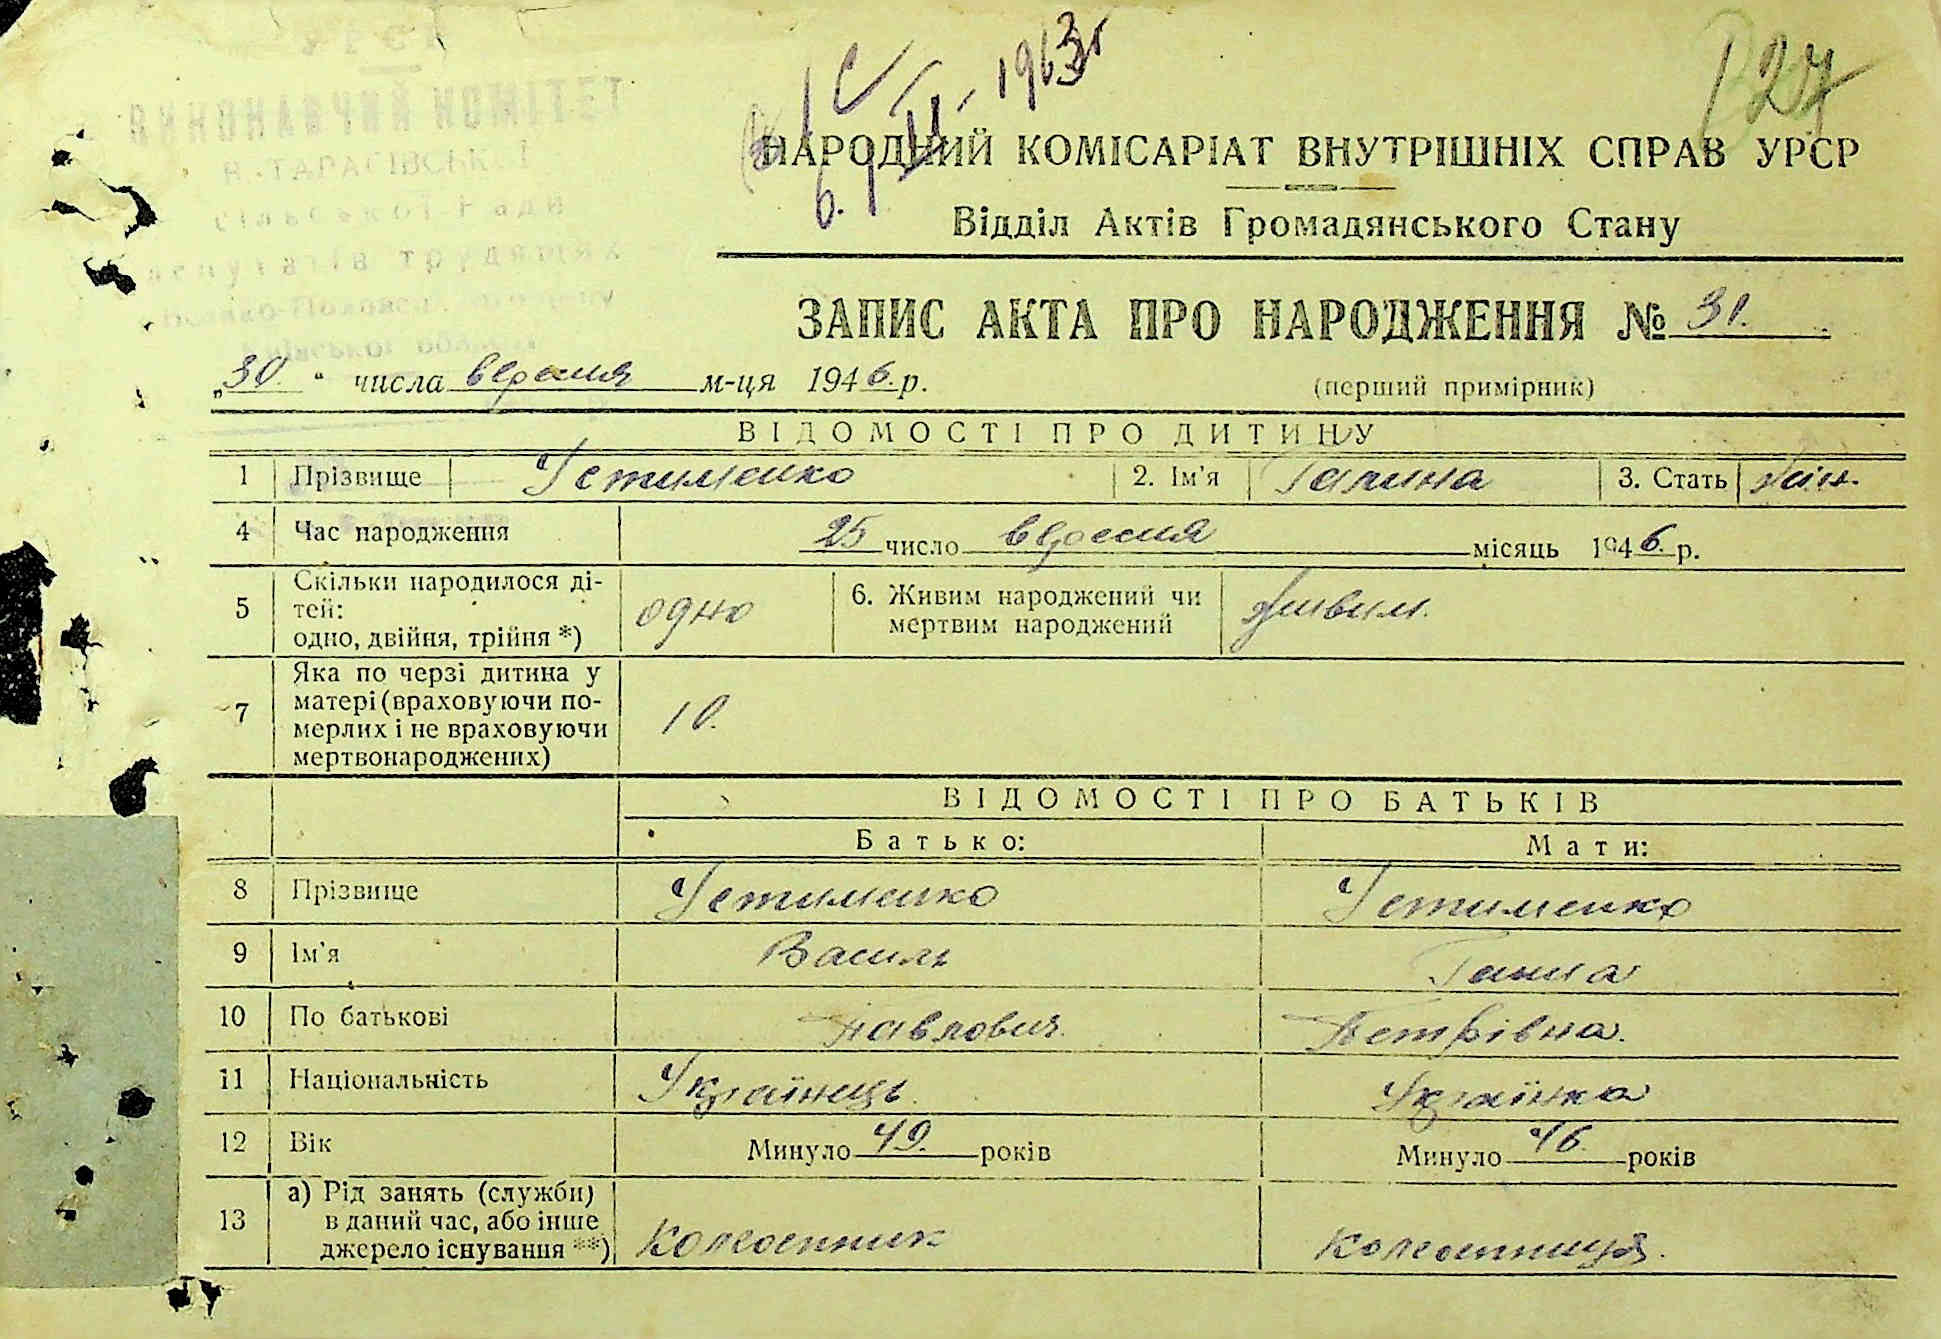 УРСР
ВИКОНАВЧИЙ КОМІТЕТ
Н. ТАРАСІВСЬКОЇ
сільської Ради
депутатів трудящих
Київської області
1963 г
127
НАРОДНИЙ КОМІСАРІАТ ВНУТРІШНІХ СПРАВ УРСР
Відділ Актів Громадянського Стану
ЗАПИС АКТА ПРО НАРОДЖЕННЯ № 31.
„30.“ числа вересня м-ця 1946. р.
(перший примірник)
ВІДОМОСТІ ПРО ДИТИНУ
1 Прізвище Устименко 2. Ім'я Галина 3. Стать жін.
4 Час народження 25 число вересня місяць 1946. р.
5 Скільки народилося ді-
тей:
одно, двійня, трійня *) одно 6. Живим народжений чи
мертвим народжений живим.
7 Яка по черзі дитина у
матері (враховуючи по-
мерлих і не враховуючи
мертвонароджених) 10.
ВІДОМОСТІ ПРО БАТЬКІВ
Батько: Мати:
8 Прізвище Устименко Устименко
9 Ім'я Василь Ганна
10 По батькові Павлович. Петрівна.
11 Національність Українець. Українка
12 Вік Минуло 49. років Минуло 46. років
13 а) Рід занять (служби)
в даний час, або інше
джерело існування **) колгоспник колгоспниця.